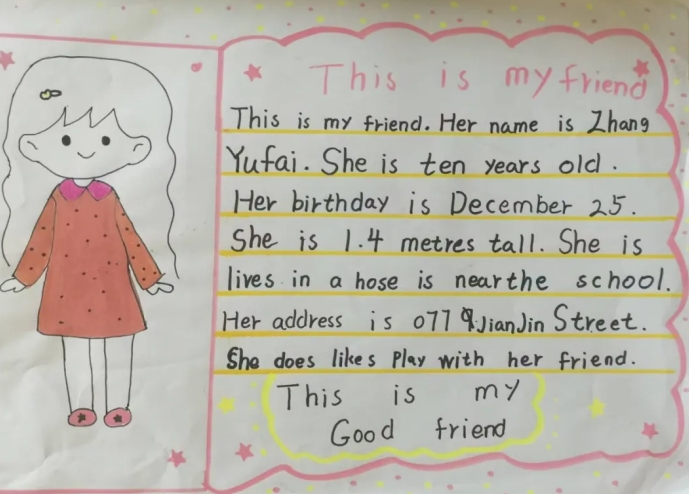 This is my friend
This is my friend. Her name is Zhang
Yufai. She is ten years old.
Her birthday is December 25.
She is 1.4 metres tall. She is
lives in a hose is near the school.
Her address is 0779 JianJin Street.
She does likes Play with her friend.
This is my
Good friend